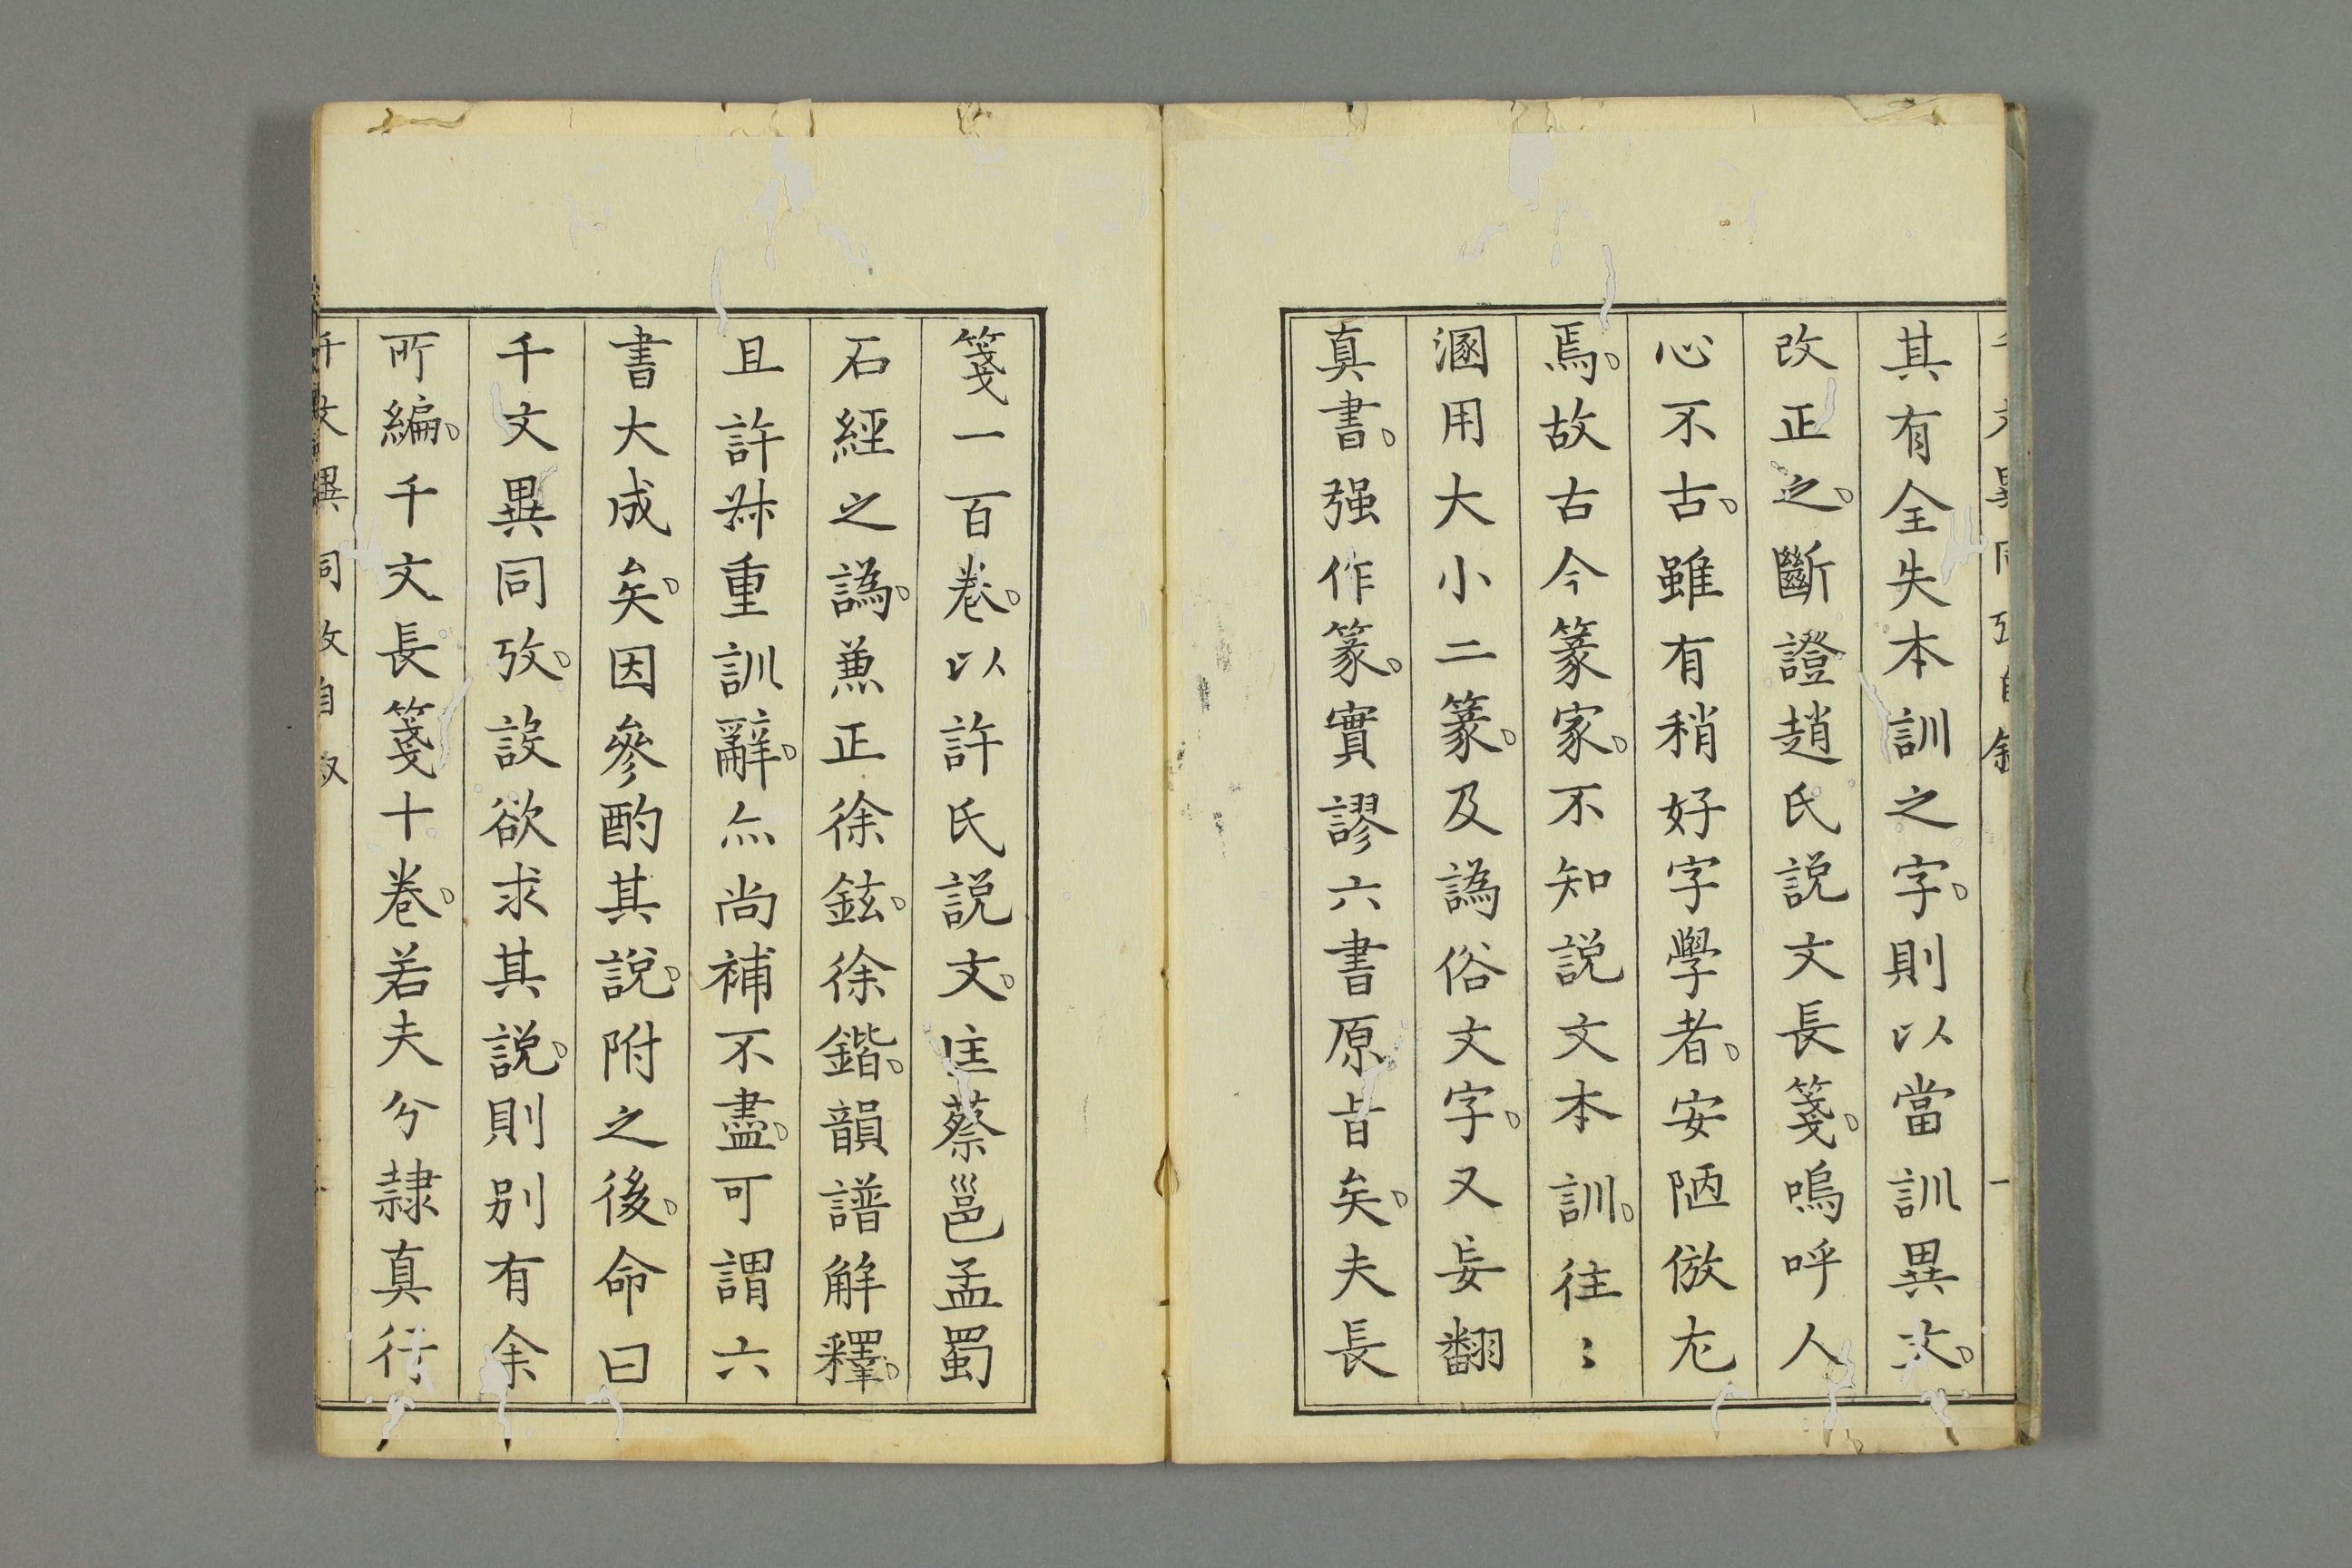 其有全失本訓之字。則以當訓異文。
改正之。斷證趙氏説文長箋。嗚呼人
心不古。雖有稍好字學者。安陋倣尤
焉。故古今篆家。不知説文本訓。往〻
溷用大小二篆。及譌俗文字。又妄翻
真書。强作篆。實謬六書原旨矣。夫長
箋一百卷。以許氏説文。㨀蔡邕孟蜀
石經之譌。兼正徐鉉。徐鍇。韻譜解釋。
且許尗重訓辭。尒尚補不盡。可謂六
書大成矣。因參酌其説。附之後。命曰
千文異同攷。設欲求其説。則别有余
所編。千文長箋十卷。若夫分隷真行
千文異同攷自叙